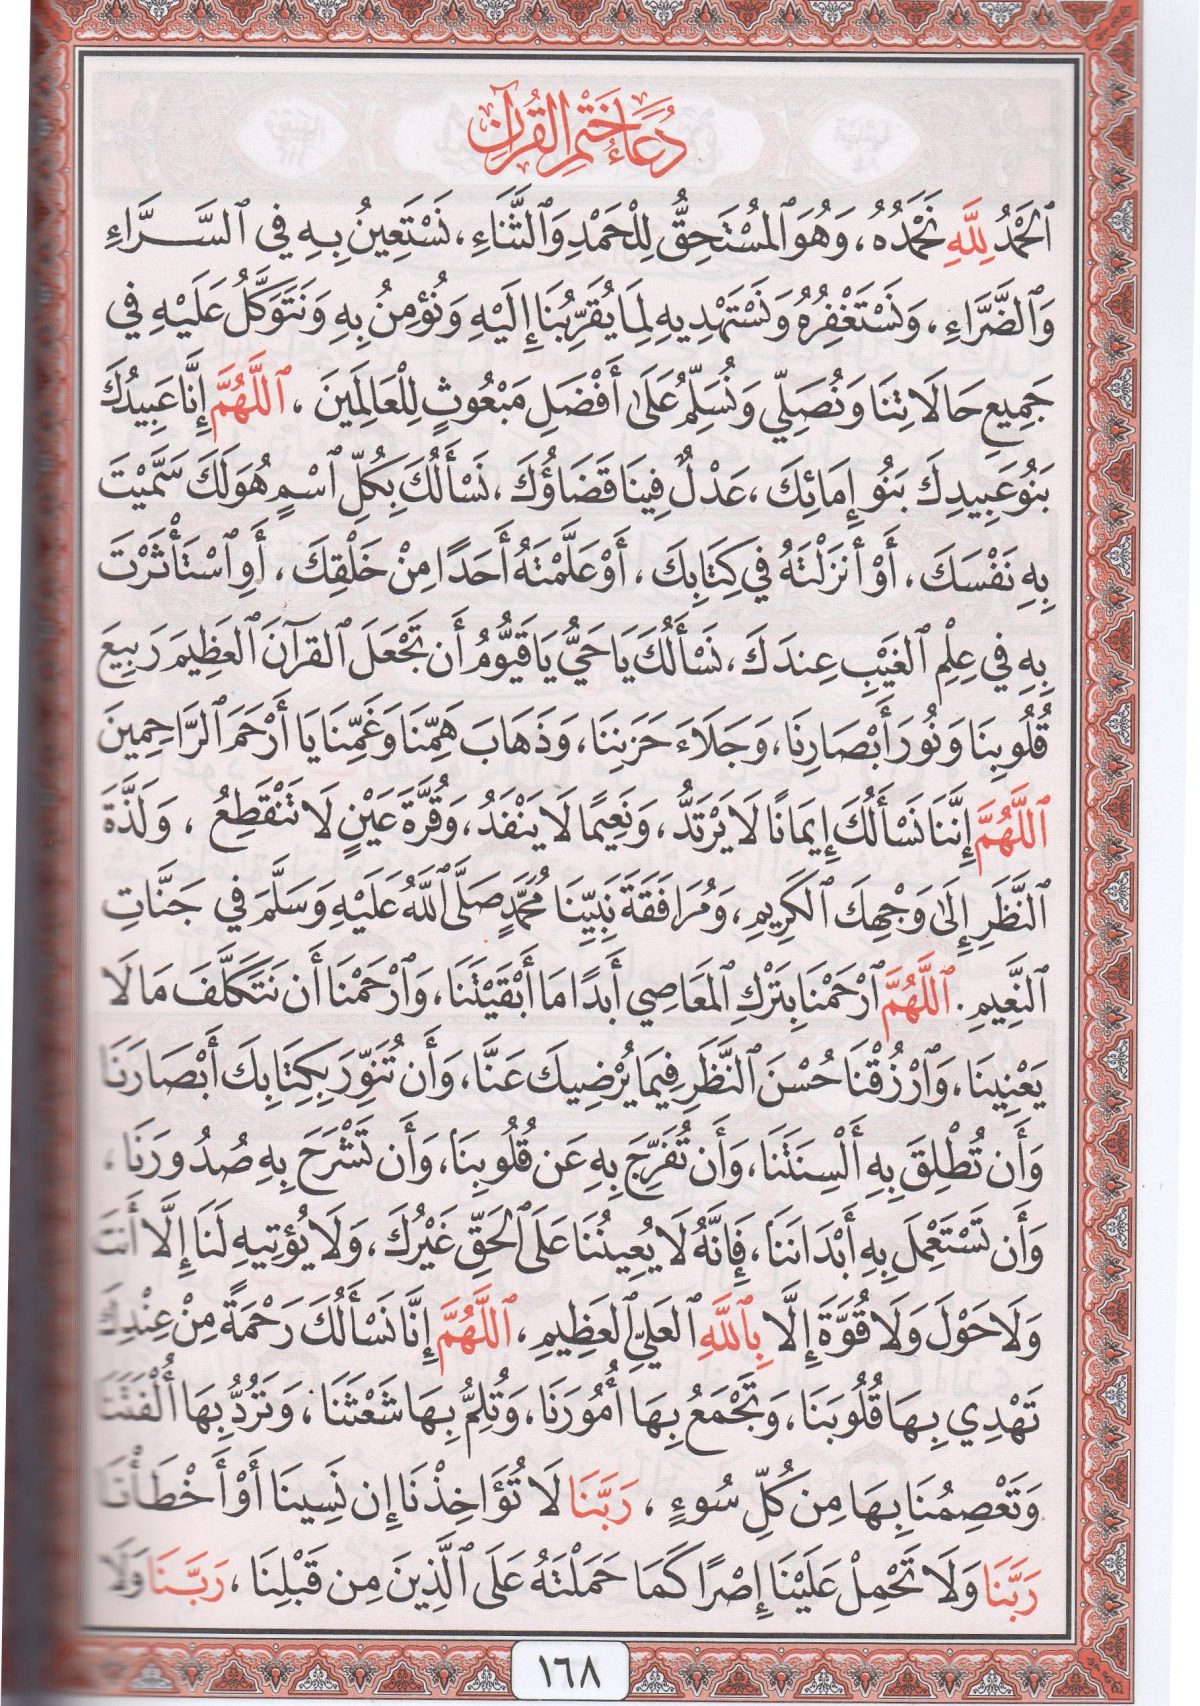 دُعَاءُ خَتْمِ الْقُرْآنِ
ٱلْحَمْدُ لِلَّهِ نَحْمَدُهُ، وَهُوَ ٱلْمُسْتَحِقُّ لِلْحَمْدِ وَٱلثَّنَاءِ، نَسْتَعِينُ بِهِ فِي ٱلسَّرَّاءِ
وَٱلضَّرَّاءِ، وَنَسْتَغْفِرُهُ وَنَسْتَهْدِيهِ لِمَا يُقَرِّبُنَا إِلَيْهِ وَنُؤْمِنُ بِهِ وَنَتَوَكَّلُ عَلَيْهِ فِي
جَمِيعِ حَالَاتِنَا وَنُصَلِّي وَنُسَلِّمُ عَلَىٰ أَفْضَلِ مَبْعُوثٍ لِلْعَالَمِينَ، ٱللَّهُمَّ إِنَّا عَبِيدُكَ
بَنُو عَبِيدِكَ بَنُو إِمَائِكَ، عَدْلٌ فِينَا قَضَاؤُكَ، نَسْأَلُكَ بِكُلِّ ٱسْمٍ هُوَ لَكَ سَمَّيْتَ
بِهِ نَفْسَكَ، أَوْ أَنزَلْتَهُ فِي كِتَابِكَ، أَوْ عَلَّمْتَهُ أَحَدًا مِنْ خَلْقِكَ، أَوِ ٱسْتَأْثَرْتَ
بِهِ فِي عِلْمِ ٱلْغَيْبِ عِندَكَ، نَسْأَلُكَ يَا حَيُّ يَا قَيُّومُ أَن تَجْعَلَ ٱلْقُرْآنَ ٱلْعَظِيمَ رَبِيعَ
قُلُوبِنَا وَنُورَ أَبْصَارِنَا، وَجَلَاءَ حَزَنِنَا، وَذَهَابَ هَمِّنَا وَغَمِّنَا يَا أَرْحَمَ ٱلرَّاحِمِينَ
ٱللَّهُمَّ إِنَّنَا نَسْأَلُكَ إِيمَانًا لَا يَرْتَدُّ، وَنَعِيمًا لَا يَنْفَدُ، وَقُرَّةَ عَيْنٍ لَا تَنْقَطِعُ، وَلَذَّةَ
ٱلنَّظَرِ إِلَىٰ وَجْهِكَ ٱلْكَرِيمِ، وَمُرَافَقَةَ نَبِيِّنَا مُحَمَّدٍ صَلَّى ٱللَّهُ عَلَيْهِ وَسَلَّمَ فِي جَنَّاتِ
ٱلنَّعِيمِ. ٱللَّهُمَّ ٱرْحَمْنَا بِتَرْكِ ٱلْمَعَاصِي أَبَدًا مَا أَبْقَيْتَنَا، وَٱرْحَمْنَا أَن نَتَكَلَّفَ مَا لَا
يَعْنِينَا، وَٱرْزُقْنَا حُسْنَ ٱلنَّظَرِ فِيمَا يُرْضِيكَ عَنَّا، وَأَن تُنَوِّرَ بِكِتَابِكَ أَبْصَارَنَا
وَأَن تُطْلِقَ بِهِ أَلْسِنَتَنَا، وَأَن تُفَرِّجَ بِهِ عَن قُلُوبِنَا، وَأَن تَشْرَحَ بِهِ صُدُورَنَا،
وَأَن تَسْتَعْمِلَ بِهِ أَبْدَانَنَا، فَإِنَّهُ لَا يُعِينُنَا عَلَى ٱلْحَقِّ غَيْرُكَ، وَلَا يُؤتِيهِ لَنَا إِلَّا أَنتَ
وَلَا حَوْلَ وَلَا قُوَّةَ إِلَّا بِٱللَّهِ ٱلْعَلِيِّ ٱلْعَظِيمِ، ٱللَّهُمَّ إِنَّا نَسْأَلُكَ رَحْمَةً مِنْ عِنْدِكَ
تَهْدِي بِهَا قُلُوبَنَا، وَتَجْمَعُ بِهَا أُمُورَنَا، وَتُلِمُّ بِهَا شَعْثَنَا، وَتَرُدُّ بِهَا أُلْفَتَنَا
وَتَعْصِمُنَا بِهَا مِن كُلِّ سُوءٍ، رَبَّنَا لَا تُؤَاخِذْنَا إِن نَسِينَا أَوْ أَخْطَأْنَا
رَبَّنَا وَلَا تَحْمِلْ عَلَيْنَا إِصْرًا كَمَا حَمَلْتَهُ عَلَى ٱلَّذِينَ مِن قَبْلِنَا، رَبَّنَا وَلَا
١٦٨